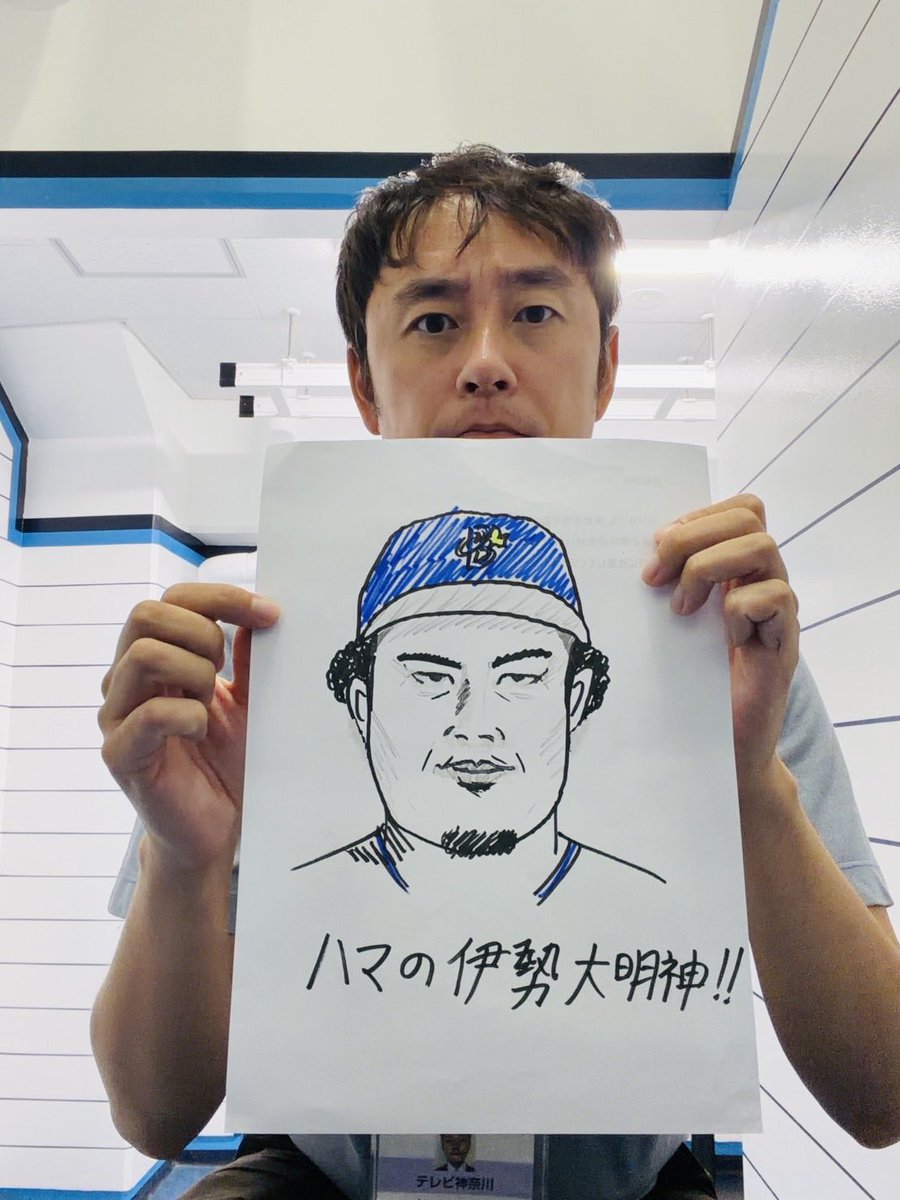 ハマの伊勢大明神!!
テレビ神奈川